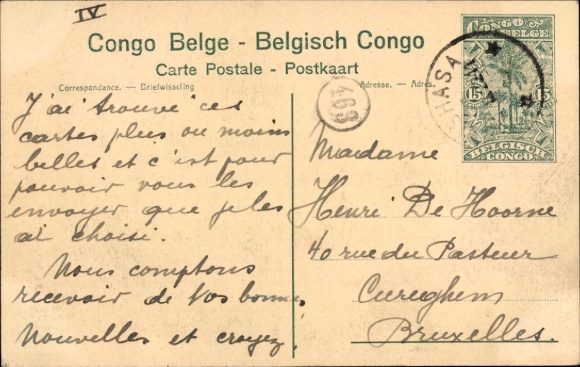 IV
Congo Belge - Belgisch Congo
Carte Postale - Postkaart
Correspondance. — Briefwisseling
Adresse. — Adres.
CONGO BELGE
15
15
BELGISCH CONGO
SHASA
J'ai trouvé ces
cartes plus ou moins
belles et c'est pour
pouvoir vous les
envoyer que je les
ai choisi.
Nous comptons
recevoir de vos bonnes
Nouvelles et croyez,
Madame
Henri De Hoorne
40 rue du Pasteur
Cureghem
Bruxelles.